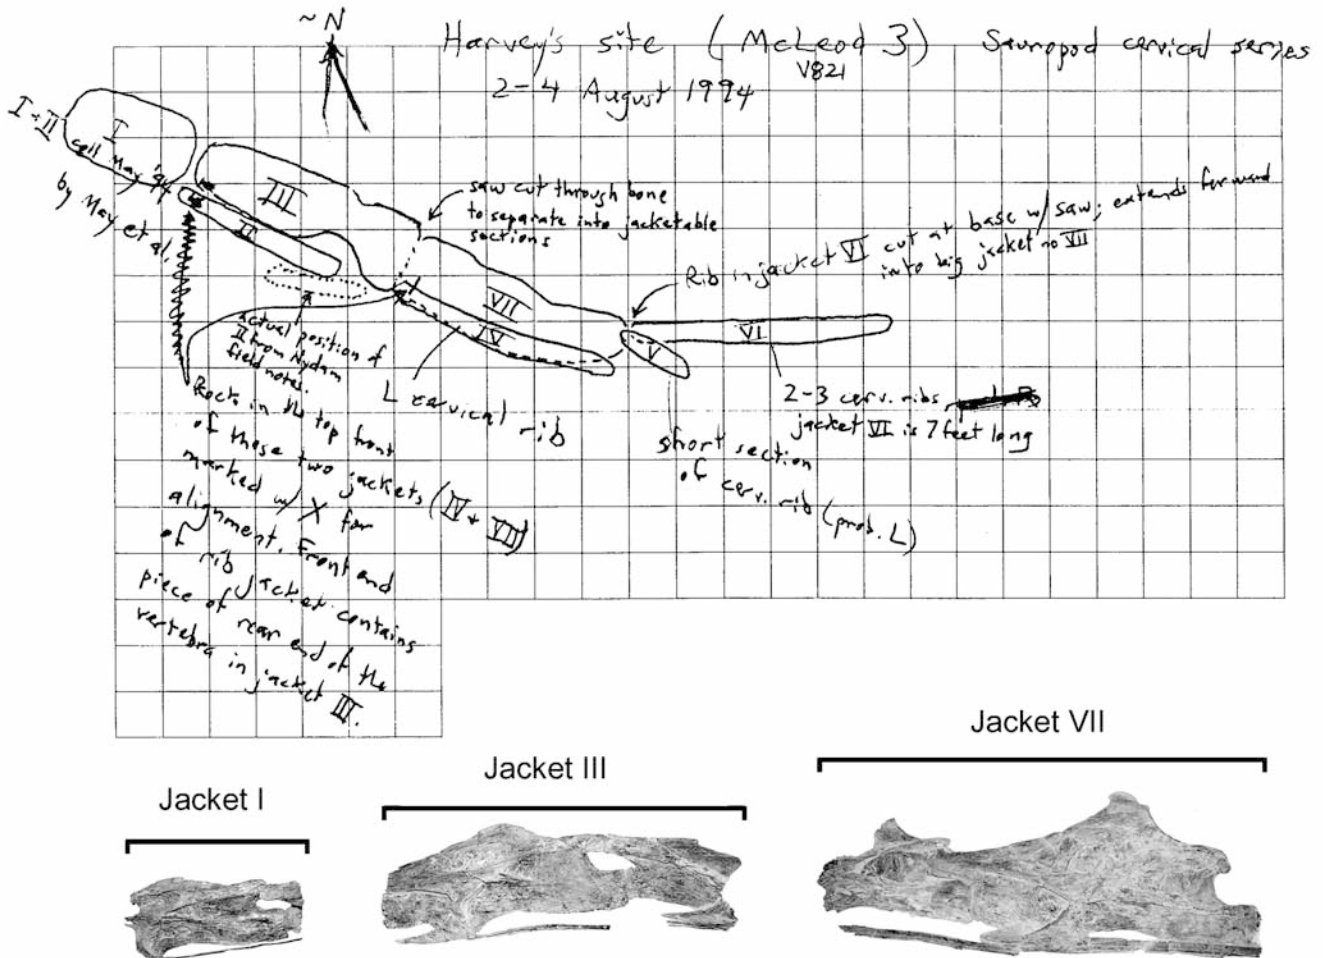 ~N
Harvey's site (McLeod 3) Sauropod cervical series
V821
2-4 August 1994
I + II
coll May '94
by May et al.
I
III
II
saw cut through bone
to separate into jacketable
sections
Rib in jacket VI cut at base w/ saw; extends forward
into big jacket no VII
VII
IV
V
VI
actual position of
II from Nydam
field notes.
L cervical rib
2-3 cerv. ribs
jacket VI is 7 feet long
short section
of cerv. rib (prob. L)
Rock in the top front
of these two jackets (IV + VII)
marked w/ X for
alignment. Front end
of rib jacket contains
piece of rear end of the
vertebra in jacket III.
Jacket I
Jacket III
Jacket VII